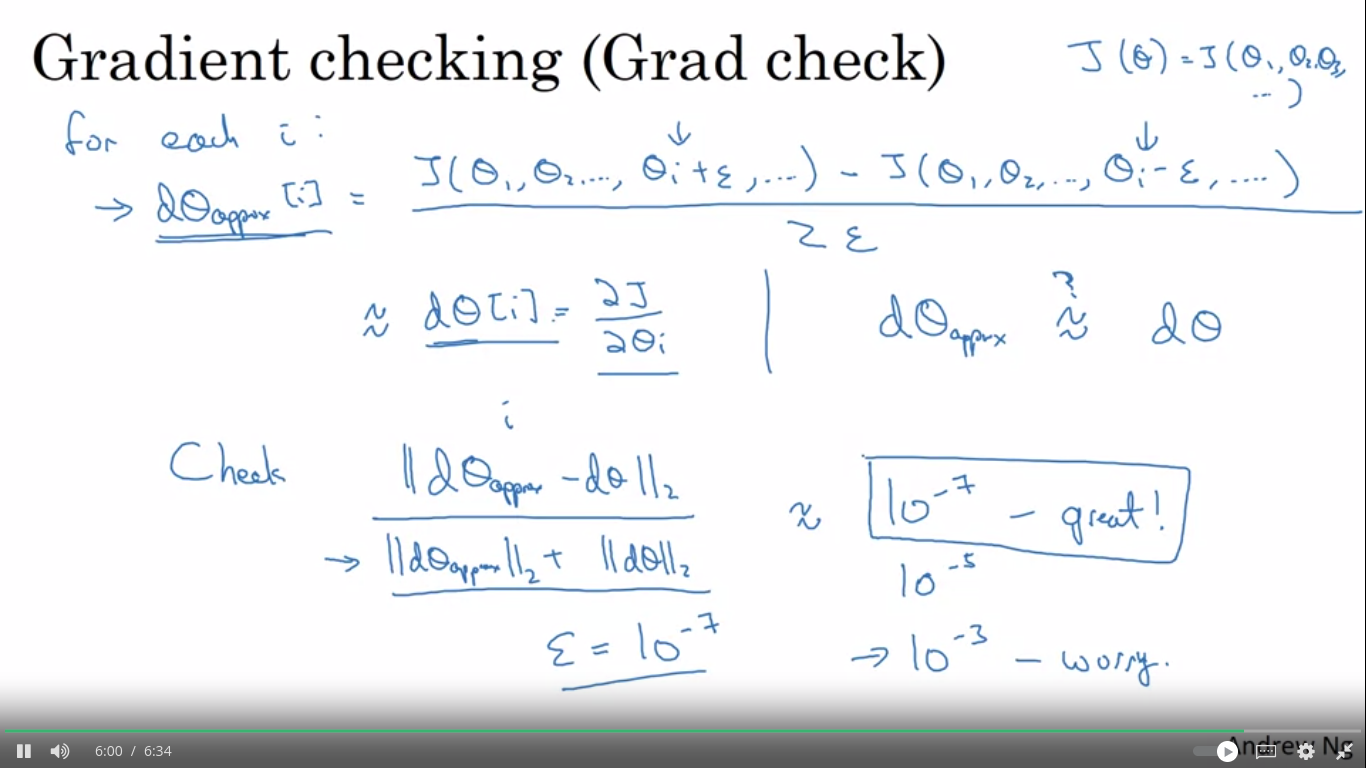 Gradient checking (Grad check)
J(θ) = J(θ₁, θ₂, θ₃, ...)
for each i:
→ dθapprox[i] = J(θ₁, θ₂, ..., θᵢ+ε, ...) - J(θ₁, θ₂, ..., θᵢ-ε, ....)
2ε
≈ dθ[i] = ∂J/∂θᵢ | dθapprox ≈? dθ
i
Check ||dθapprox - dθ||₂ ≈ 10⁻⁷ - great!
→ ||dθapprox||₂ + ||dθ||₂ 10⁻⁵
ε = 10⁻⁷ → 10⁻³ - worry.
Andrew Ng
6:00 / 6:34